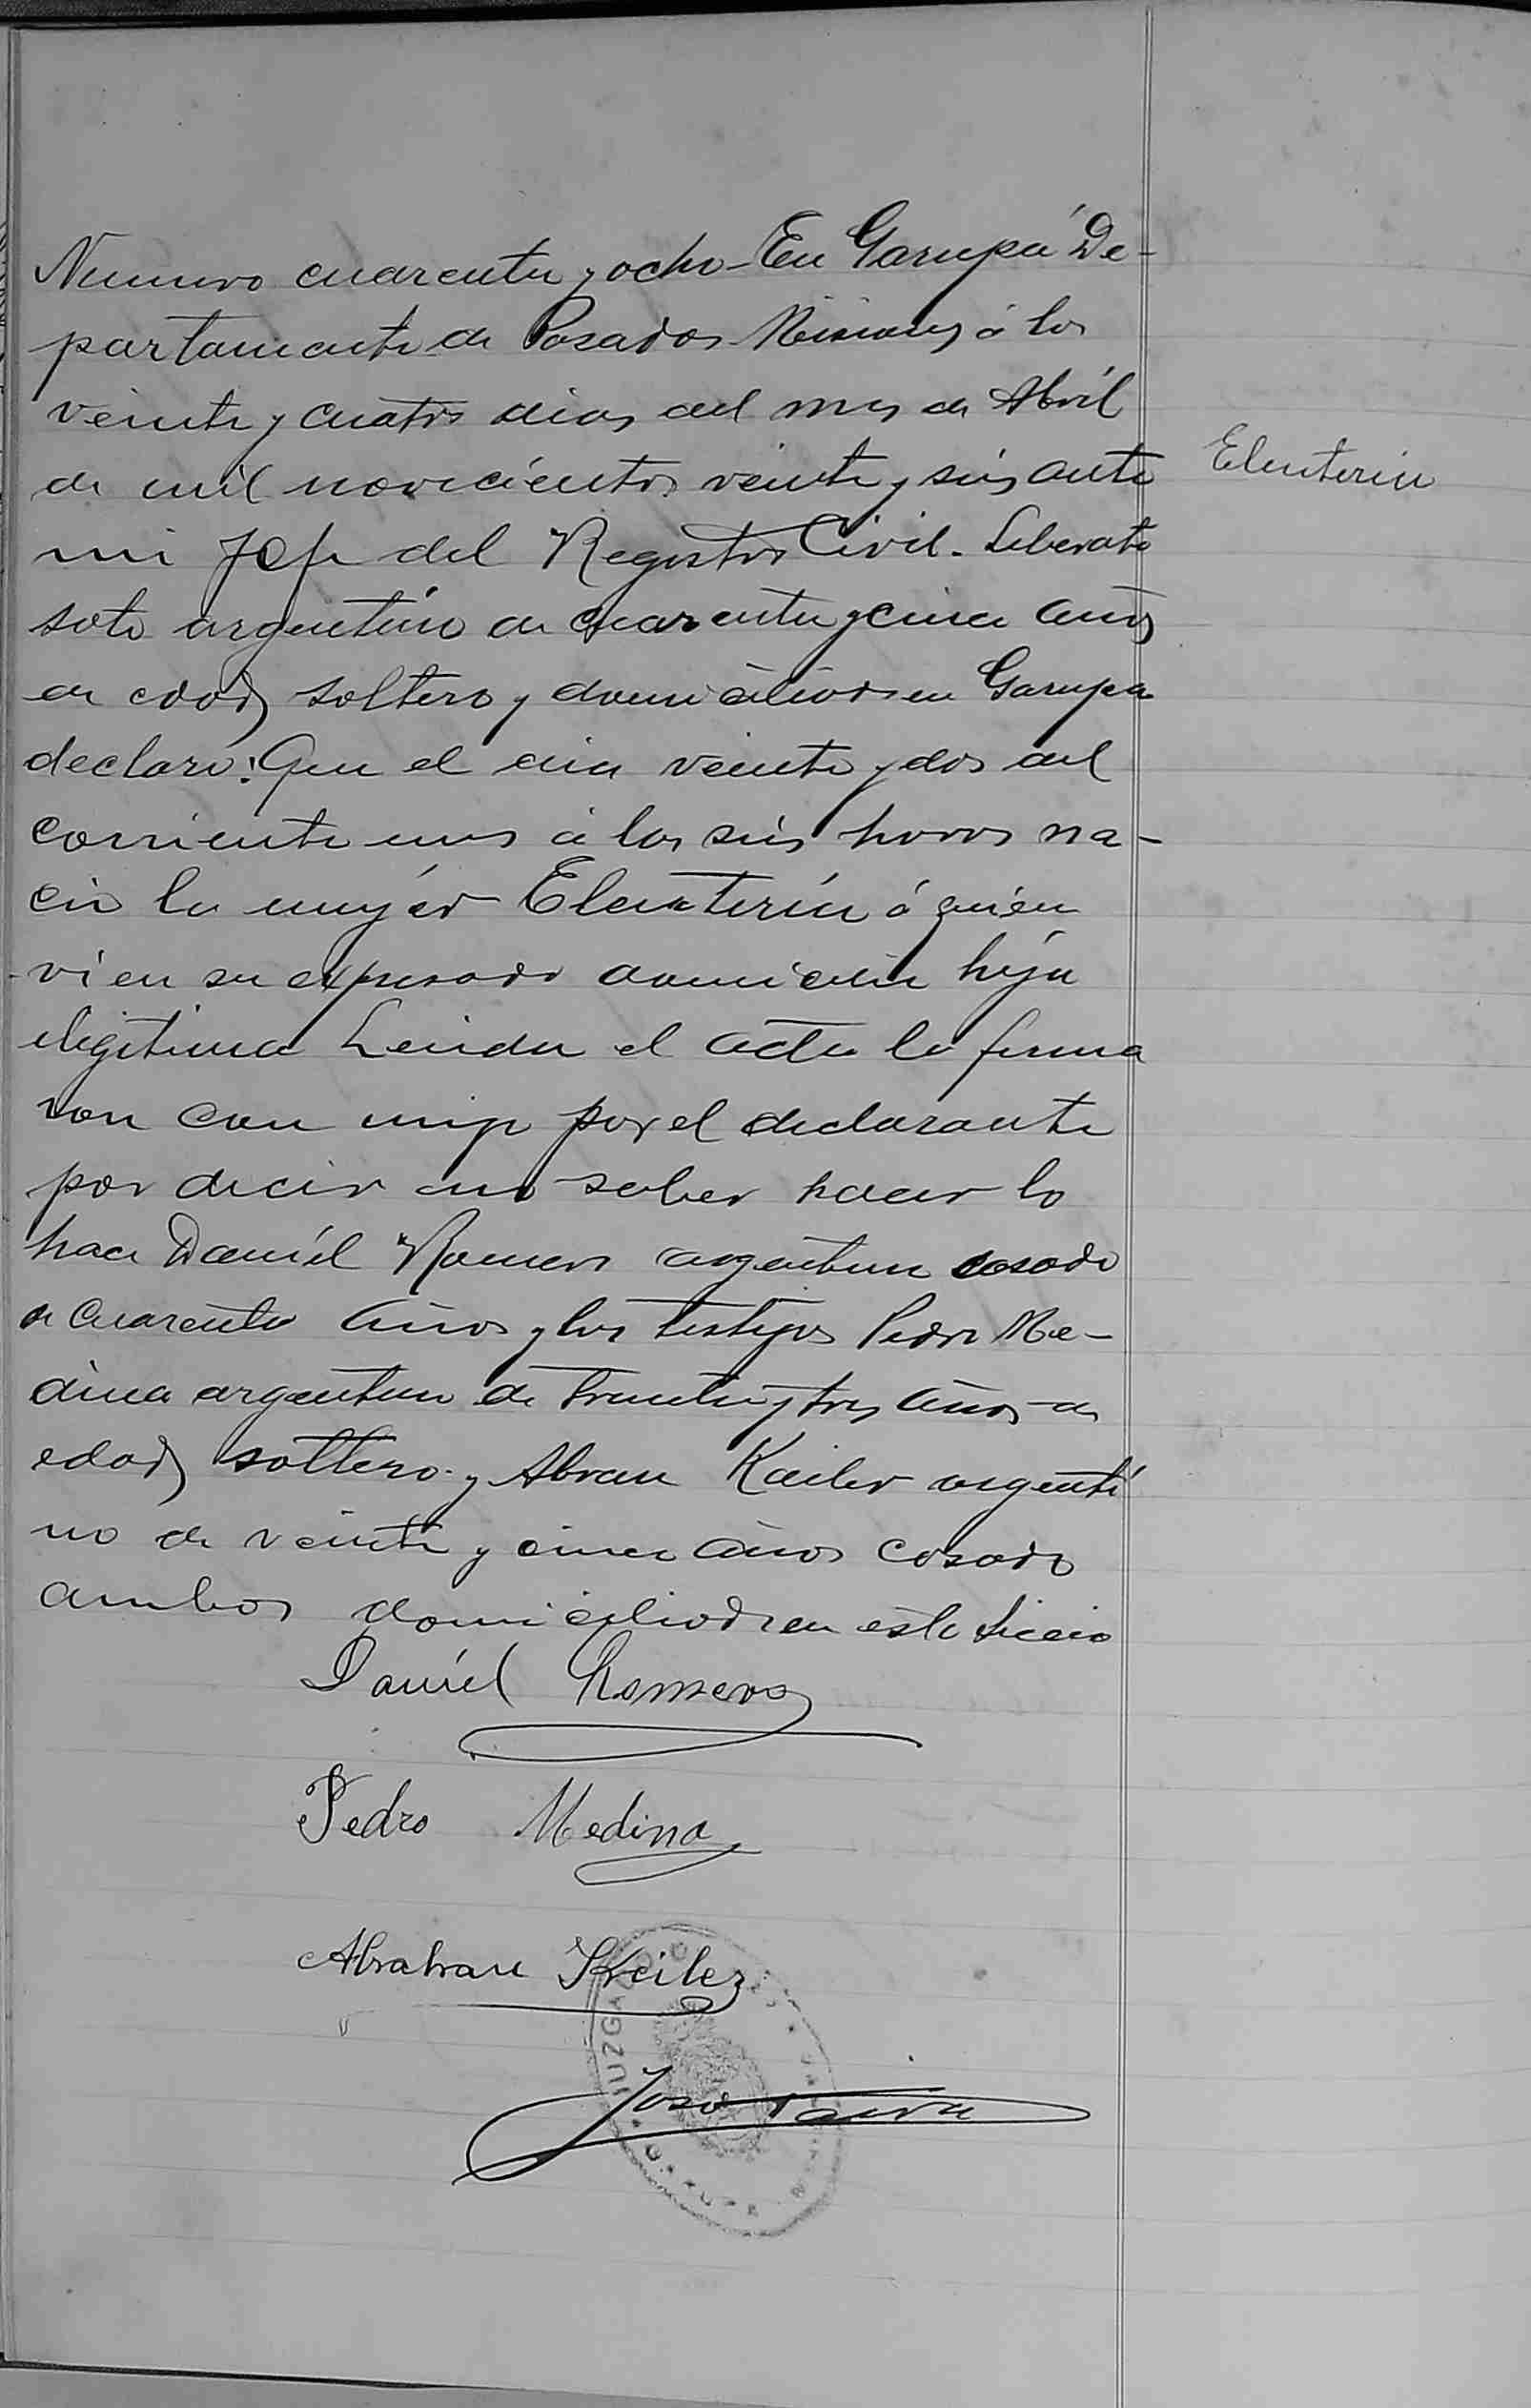 Numero cuarenta y ocho - En Garupá De-
partamento de Posadas Misiones á los
veinte y cuatro dias del mes de Abril
de mil novecientos veinte y seis ante
Eleuteria
mi Jefe del Registro Civil. Liberato
Soto argentino de cuarenta y cinco años
de edad soltero y domiciliado en Garupa
declaro: Que el dia veinte y dos del
corriente mes á las seis horas na-
cio la mujer Eleuteria á quien
vi en su expresado domicilio hija
ilegitima Leida el acta la firma
ron con migo por el declarante
por decir no saber hacer lo
hace Daniel Romero argentino casado
de cuarenta años y los testigos Pedro Me-
dina argentino de treinta y tres años de
edad soltero y Abran Keiler argenti
no de veinte y cinco años casado
ambos domiciliados en este
Daniel Romero
Pedro Medina
Abraham Keiler
José
JUZGADO
GARUPA